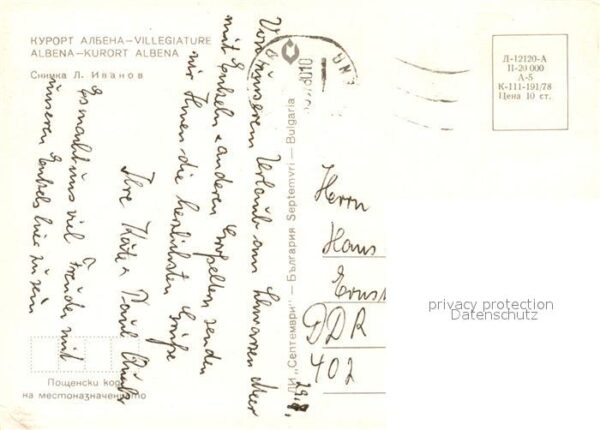 КУРОРТ АЛБЕНА—VILLEGIATURE
ALBENA—KURORT ALBENA
Снимка Л. Иванов
Von unserem Urlaub am Schwarzen Meer
mit Enkeln + anderen Großeltern senden
wir Ihnen die herzlichsten Grüße
Ihre Käte + Paul
Es macht uns viel Freude, mit
unseren Enkels hier zu sein
29.8.
Пощенски код
на местоназначението
ДИ „Септември" — България Septemvri — Bulgaria
Д-12120-А
П-20 000
А-5
К-111-191/78
Цена 10 ст.
Herrn
Hans
Ernst
DDR
402
privacy protection
Datenschutz